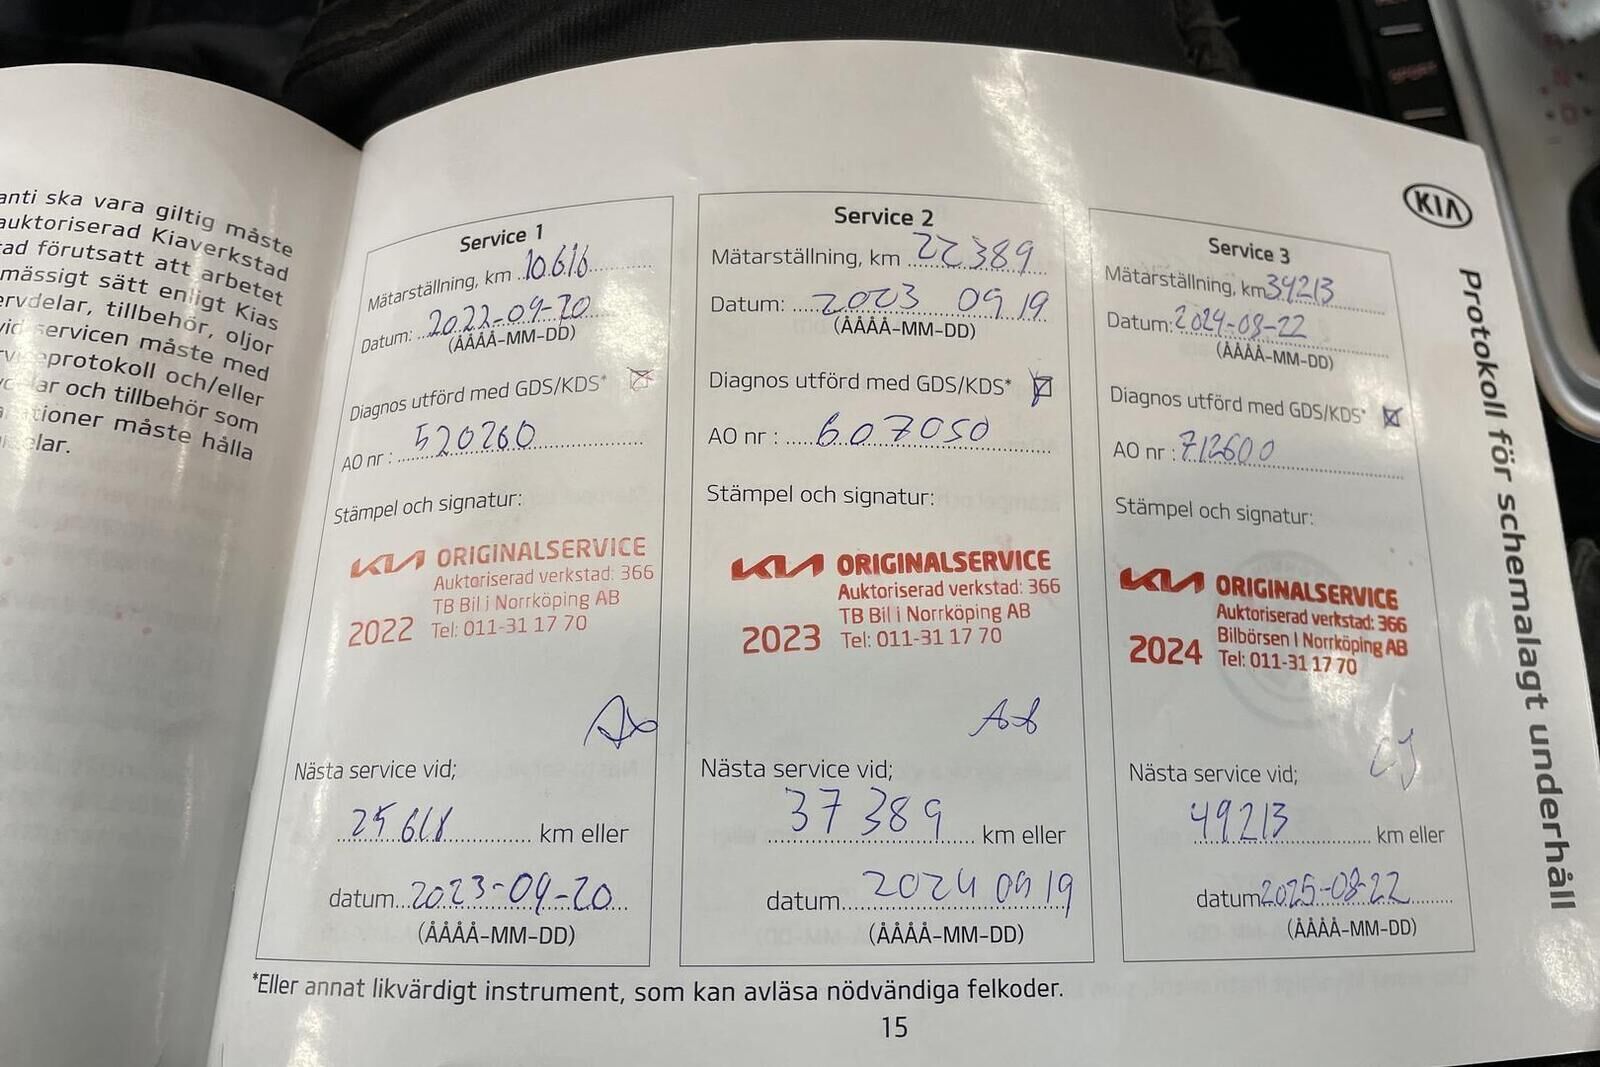 anti ska vara giltig måste
auktoriserad Kiaverkstad
tad förutsatt att arbetet
mässigt sätt enligt Kias
ervdelar, tillbehör, oljor
vid servicen måste med
rviceprotokoll och/eller
ar och tillbehör som
ationer måste hålla
elar.
KIA
Protokoll för schemalagt underhåll
Service 1
Mätarställning, km 10616
Datum: 2022-09-20
(ÅÅÅÅ-MM-DD)
Diagnos utförd med GDS/KDS*
AO nr : 520260
Stämpel och signatur:
KIA ORIGINALSERVICE
Auktoriserad verkstad: 366
TB Bil i Norrköping AB
2022 Tel: 011-31 17 70
Nästa service vid;
25616 km eller
datum 2023-09-20
(ÅÅÅÅ-MM-DD)
Service 2
Mätarställning, km 22389
Datum: 2023 09 19
(ÅÅÅÅ-MM-DD)
Diagnos utförd med GDS/KDS*
AO nr : 607050
Stämpel och signatur:
KIA ORIGINALSERVICE
Auktoriserad verkstad: 366
TB Bil i Norrköping AB
2023 Tel: 011-31 17 70
Nästa service vid;
37 389 km eller
datum 2024 09 19
(ÅÅÅÅ-MM-DD)
Service 3
Mätarställning, km 34213
Datum: 2024-08-22
(ÅÅÅÅ-MM-DD)
Diagnos utförd med GDS/KDS*
AO nr : 712600
Stämpel och signatur:
KIA ORIGINALSERVICE
Auktoriserad verkstad: 366
Bilbörsen I Norrköping AB
2024 Tel: 011-31 17 70
Nästa service vid;
49213 km eller
datum 2025-08-22
(ÅÅÅÅ-MM-DD)
*Eller annat likvärdigt instrument, som kan avläsa nödvändiga felkoder.
15